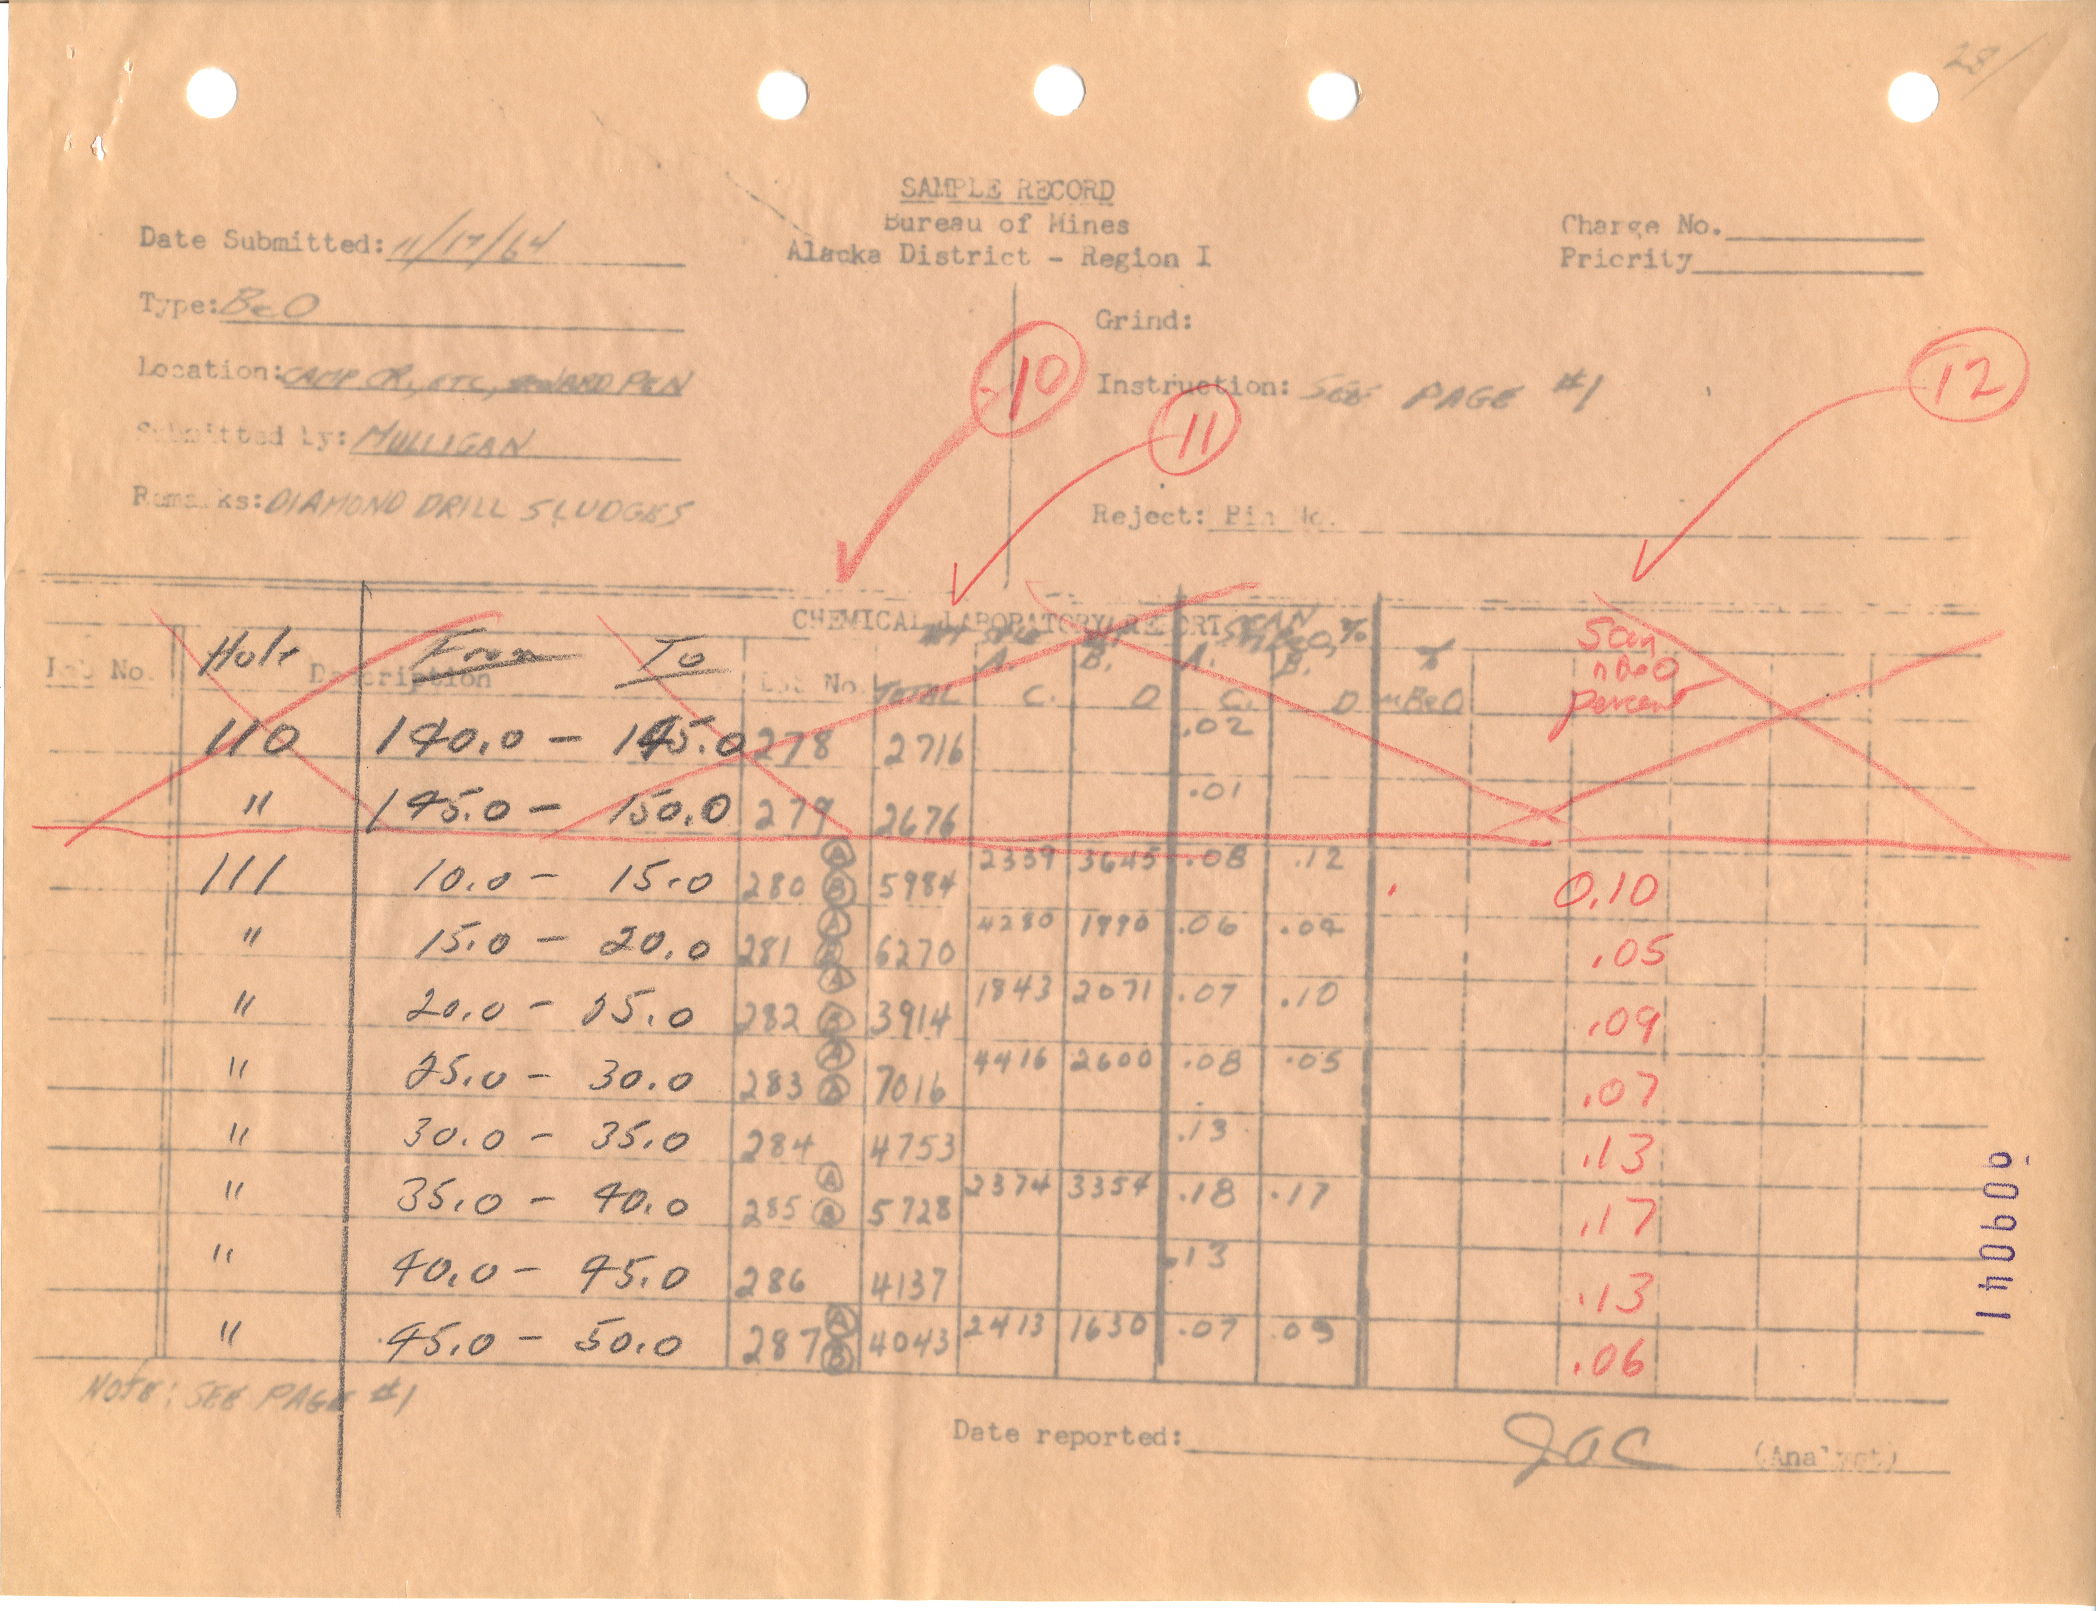 28/
SAMPLE RECORD
Bureau of Mines
Alaska District - Region I
Date Submitted: 11/17/64
Charge No.
Priority
Type: BeO
Grind:
10
12
Location: CAMP CR, ETC, SEWARD PEN
Instruction: SEE PAGE #1
11
Submitted by: MULLIGAN
Remarks: DIAMOND DRILL SLUDGES
Reject: Bin No.
CHEMICAL LABORATORY REPORT
Lab No. Hole Description From To Lab No. TOTAL A. B. C. D SCAN BeO, % A. B. C. D % mBeO Scan nBeO percent
110 140.0 - 145.0 278 2716 .02
" 145.0 - 150.0 279 2676 .01
111 10.0 - 15.0 280 A B 5984 2339 3645 .08 .12 0.10
" 15.0 - 20.0 281 A B 6270 4280 1990 .06 .04 .05
" 20.0 - 25.0 282 A B 3914 1843 2071 .07 .10 .09
" 25.0 - 30.0 283 A B 7016 4416 2600 .08 .05 .07
" 30.0 - 35.0 284 4753 .13 .13
" 35.0 - 40.0 285 A B 5728 2374 3354 .18 .17 .17
" 40.0 - 45.0 286 4137 .13 .13
" 45.0 - 50.0 287 A B 4043 2413 1630 .07 .05 .06
NOTE: SEE PAGE #1
Date reported: JAC (Analyst)